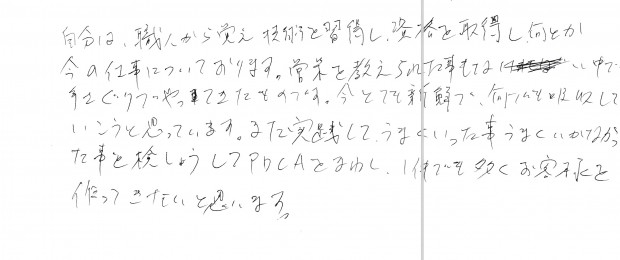 自分は、職人から覚え技術を習得し、資格を取得し何とか
今の仕事についております。営業を教えられた事もない中で
手さぐりでやってきたものです。今とても新鮮で、何でも吸収して
いこうと思っています。また実践して、うまくいった事うまくいかなかっ
た事を検しょうしてPDCAをまわし、1件でも多くお客様を
作って きたいと思います。